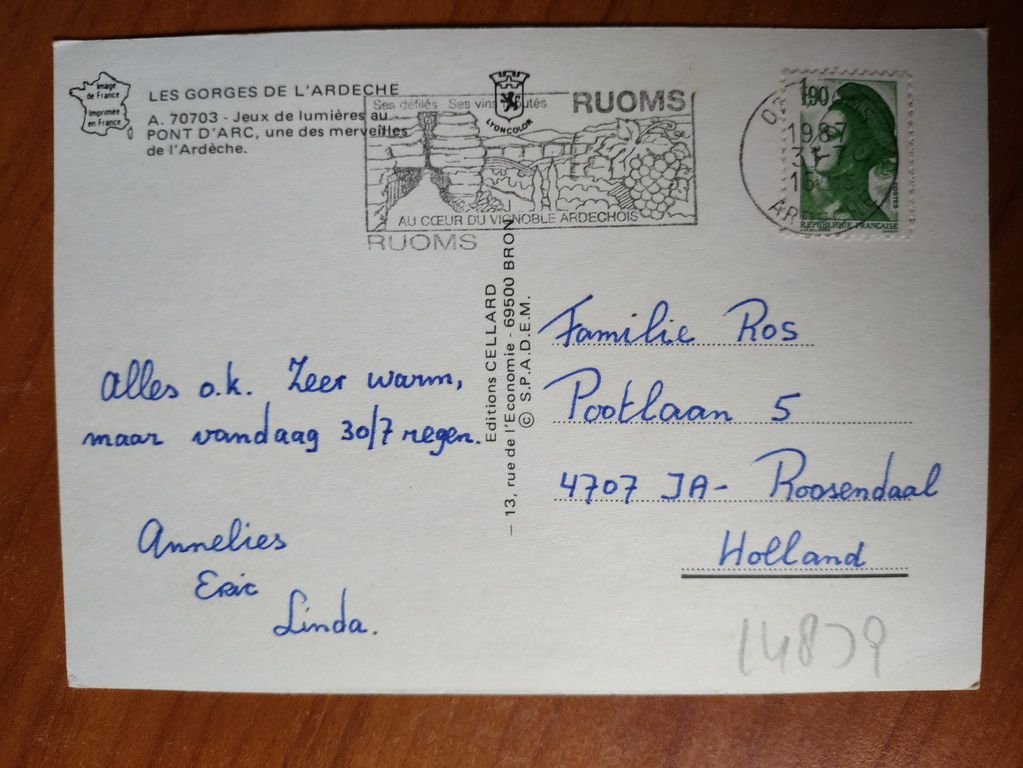 Image
de France
Imprimée
en France
LES GORGES DE L'ARDECHE
A. 70703 - Jeux de lumières au
PONT D'ARC, une des merveilles
de l'Ardèche.
LYONCOLOR
Ses défilés Ses vins
RUOMS
AU CŒUR DU VIGNOBLE ARDECHOIS
RUOMS
1987
1,90
POSTES
REPUBLIQUE FRANÇAISE
Editions CELLARD
— 13, rue de l'Economie - 69500 BRON
© S.P.A.D.E.M.
Alles o.k. Zeer warm,
maar vandaag 30/7 regen.
Annelies
Eric
Linda.
Familie Ros
Pootlaan 5
4707 JA - Roosendaal
Holland